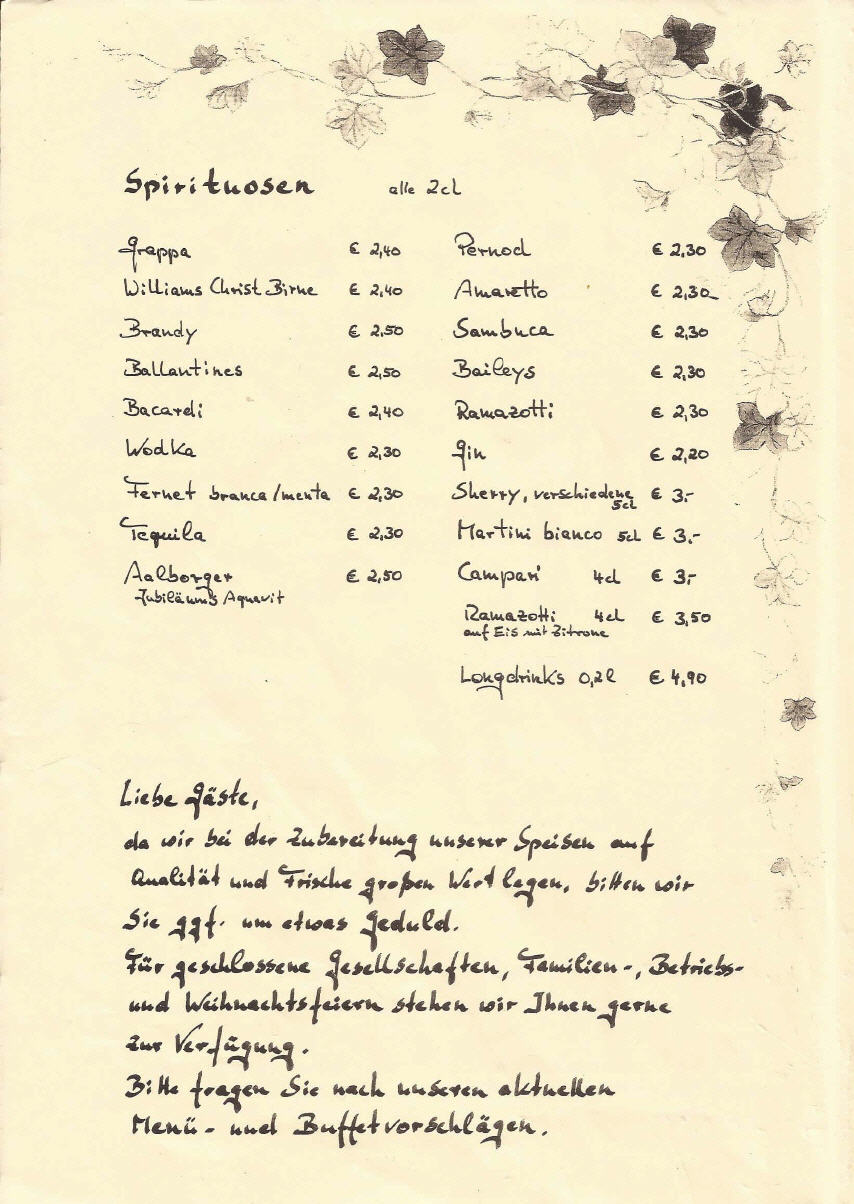 Spirituosen alle 2cl
Grappa € 2,40
Williams Christ Birne € 2,40
Brandy € 2,50
Ballantines € 2,50
Bacardi € 2,40
Wodka € 2,30
Fernet branca/menta € 2,30
Tequila € 2,30
Aalborger € 2,50
Jubiläums Aquavit
Pernod € 2,30
Amaretto € 2,30
Sambuca € 2,30
Baileys € 2,30
Ramazotti € 2,30
Gin € 2,20
Sherry, verschiedene € 3,-
5cl
Martini bianco 5cl € 3,-
Campari 4cl € 3,-
Ramazotti 4cl € 3,50
auf Eis mit Zitrone
Longdrinks 0,2l € 4,90
Liebe Gäste,
da wir bei der Zubereitung unserer Speisen auf
Qualität und Frische großen Wert legen, bitten wir
Sie ggf. um etwas Geduld.
Für geschlossene Gesellschaften, Familien-, Betriebs-
und Weihnachtsfeiern stehen wir Ihnen gerne
zur Verfügung.
Bitte fragen Sie nach unseren aktuellen
Menü- und Buffetvorschlägen.